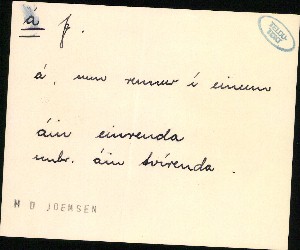 á f.
á, sum rennur í einum
áin einrenda
mbr. áin tvírenda.
H D JOENSEN